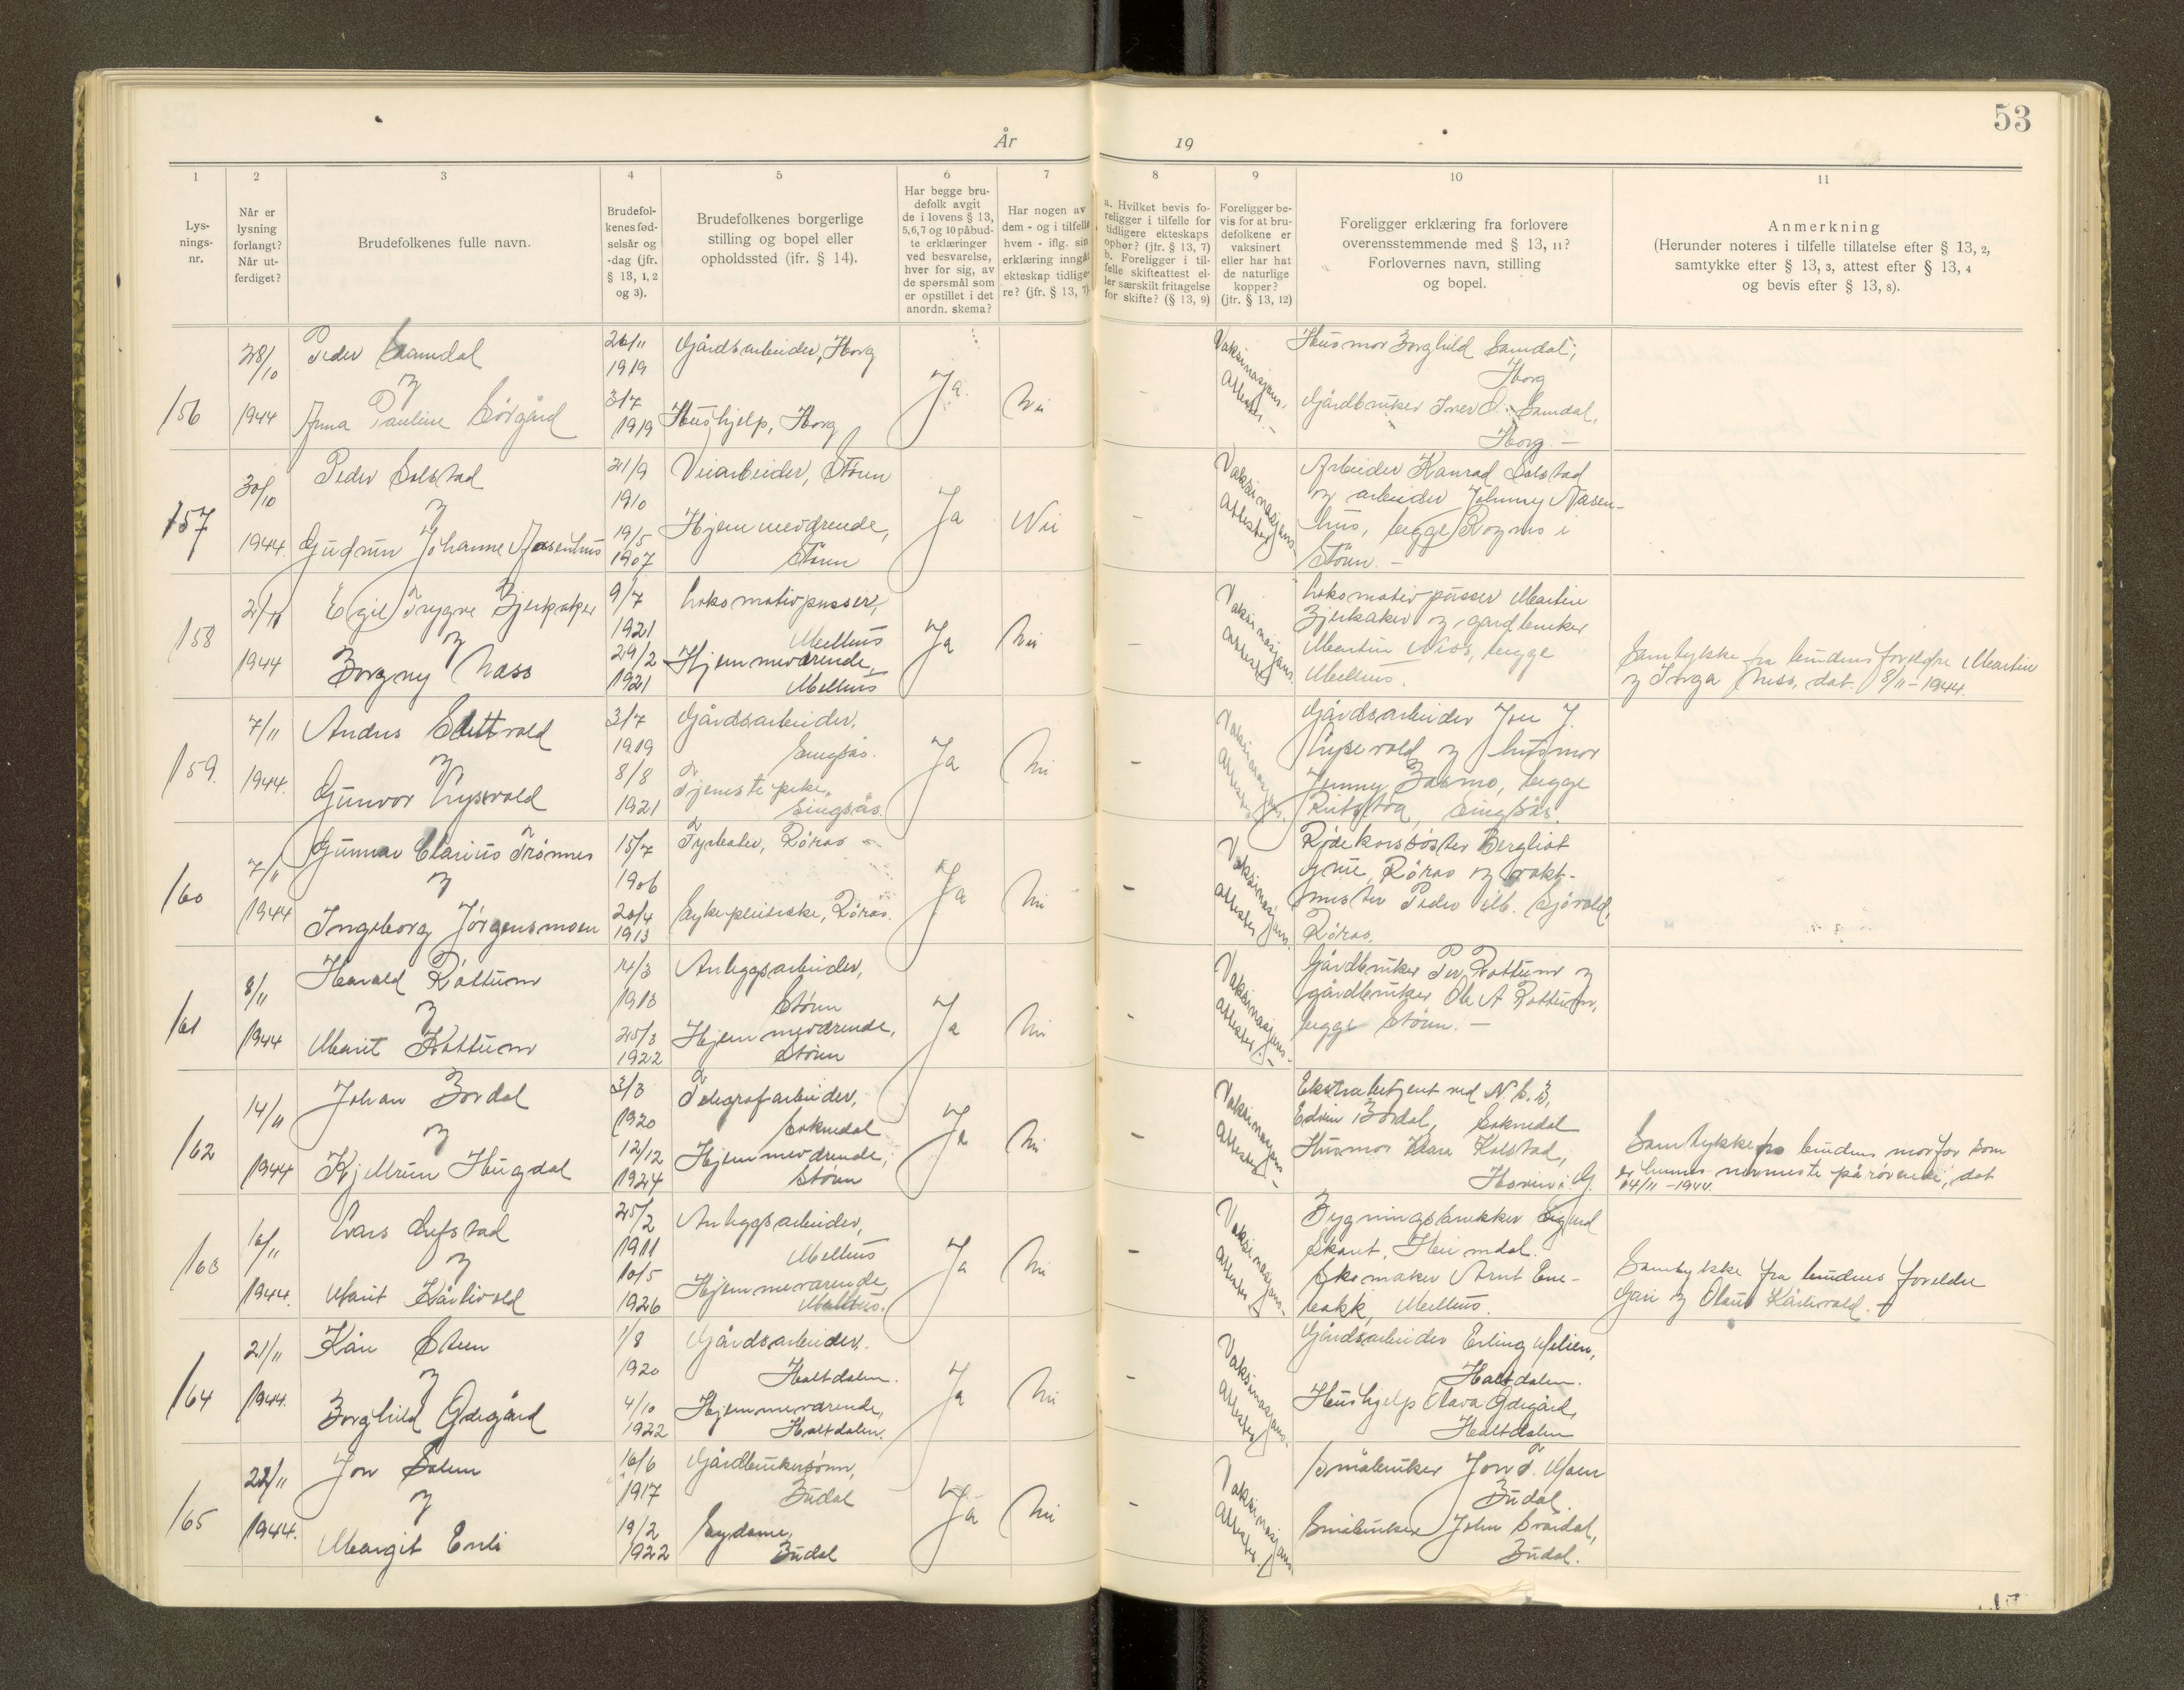 53
År 19
1 2 3 4 5 6 7 8 9 10 11
Lys-
nings-
nr.
Når er
lysning
forlangt?
Når ut-
ferdiget?
Brudefolkenes fulle navn.
Brudefol-
kenes fød-
selsår og
-dag (jfr.
§ 13, 1, 2
og 3).
Brudefolkenes borgerlige
stilling og bopel eller
opholdssted (jfr. § 14).
Har begge bru-
defolk avgit
de i lovens § 13,
5,6,7 og 10 påbud-
te erklæringer
ved besvarelse,
hver for sig, av
de spørsmål som
er opstillet i det
anordn. skema?
Har nogen av
dem - og i tilfelle
hvem - iflg. sin
erklæring inngåt
ekteskap tidlige-
re? (jfr. § 13, 7)
a. Hvilket bevis fo-
religger i tilfelle for
tidligere ekteskaps
ophør? (jfr. § 13, 7)
b. Foreligger i til-
felle skifteattest el-
ler særskilt fritagelse
for skifte? (§ 13, 9)
Foreligger be-
vis for at bru-
defolkene er
vaksinert
eller har hat
de naturlige
kopper?
(jfr. § 13, 12)
Foreligger erklæring fra forlovere
overensstemmende med § 13, 11?
Forlovernes navn, stilling
og bopel.
Anmerkning
(Herunder noteres i tilfelle tillatelse efter § 13, 2,
samtykke efter § 13, 3, attest efter § 13, 4
og bevis efter § 13, 8).
156
28/10
1944
Peder Samdal
og
Anna Pauline Sørgård
26/11
1919
3/7
1919
Gårdsarbeider, Horg
Hushjelp, Horg
Ja
Nei
-
Vaksinasjons-
attester. -
Husmor Borghild Samdal,
Horg
Gårdbruker Iver O. Samdal,
Horg. -
157
30/10
1944.
Peder Solstad
og
Gudrun Johanne Næsenhus
21/9
1910
19/5
1907
Veiarbeider, Støren
Hjemmeværende,
Støren
Ja
Nei
-
Vaksinasjons-
attester
Arbeider Konrad Solstad
og arbeider Johnny Næsen-
hus, begge Rognes i
Støren. -
158
2/11
1944
Egil Trygve Bjerkaker
og
Borgny Næss
9/7
1921
29/2
1921
Lokomotivpusser,
Melhus
Hjemmeværende,
Melhus
Ja
Nei
-
Vaksinasjons-
attester
Lokomotivpusser Martin
Bjerkaker og gardbruker
Martin Næss, begge
Melhus.
Samtykke fra brudens foreldre Martin
og Inga Næss, dat. 8/11-1944.
159.
7/11
1944.
Anders Slettvold
og
Gunvor Lysvold
3/7
1919
8/8
1921
Gårdsarbeider.
Singsås.
Tjenestepike,
Singsås.
Ja
Nei
-
Vaksinasjons-
attester
Gårdsarbeider Jon J.
Lysvold og husmor
Jenny Bosmo, begge
Singsås.
160
7/11
1944
Gunnar Clarius Trønnes
og
Ingeborg Jørgensmoen
15/7
1906
20/4
1913
Fyrbøter, Røros
Sykepleierske, Røros.
Ja
Nei
-
Vaksinasjons-
attester
Rødekorssøster Bergliot
Røros og vakt-
mester Peder Sjøvold,
Røros.
161
8/11
1944
Harald Rottum
og
Marit Rottum
14/3
1913
25/3
1922
Anleggsarbeider,
Støren
Hjemmeværende,
Støren
Ja
Nei
-
Vaksinasjons-
attester. -
Gårdbruker Per Rottum og
gårdbruker Ole A Rottum,
begge Støren. -
162
14/11
1944
Johan Bordal
og
Kjellrun Hugdal
3/3
1920
12/12
1924
Telegrafarbeider,
Soknedal
Hjemmeværende,
Støren
Ja
Nei
-
Vaksinasjons-
attester -
Ekstrabetjent ved N.S.B,
Edvin Bordal, Soknedal
Husmor Klara Kolstad,
Hovin i G.
Samtykke fra brudens morfor som
er hennes nærmeste pårørende, dat
14/11-1944.
163
16/11
1944.
Lars Lefstad
og
Marit Kårlivold
25/2
1911
10/5
1926
Anleggsarbeider,
Melhus
Hjemmeværende
Melhus.
Ja
Nei
-
Vaksinasjons-
attester
Bygningssnekker Sigurd
Skaret, Heimdal.
Skomaker Arnt Ene-
bakk, Melhus.
Samtykke fra brudens foreldre
Guri og Olaus Kårlivold. -
164
21/11
1944.
Kåre Steen
og
Borghild Ødegård
1/8
1920
4/10
1922
Gårdsarbeider.
Haltdalen.
Hjemmeværende,
Haltdalen.
Ja
Nei
-
Vaksinasjons-
attester
Gårdsarbeider Erling Melien,
Haltdalen.
Hushjelp Olava Ødegård,
Haltdalen
165
22/11
1944.
Jon Solem
og
Margit Enli
16/6
1917
19/2
1922
Gårdbrukersønn,
Budal
Sydame,
Budal
Ja
Nei
-
Vaksinasjons-
attester.
Småbruker Jon T. Moen
Budal.
Småbruker John Svardal,
Budal.